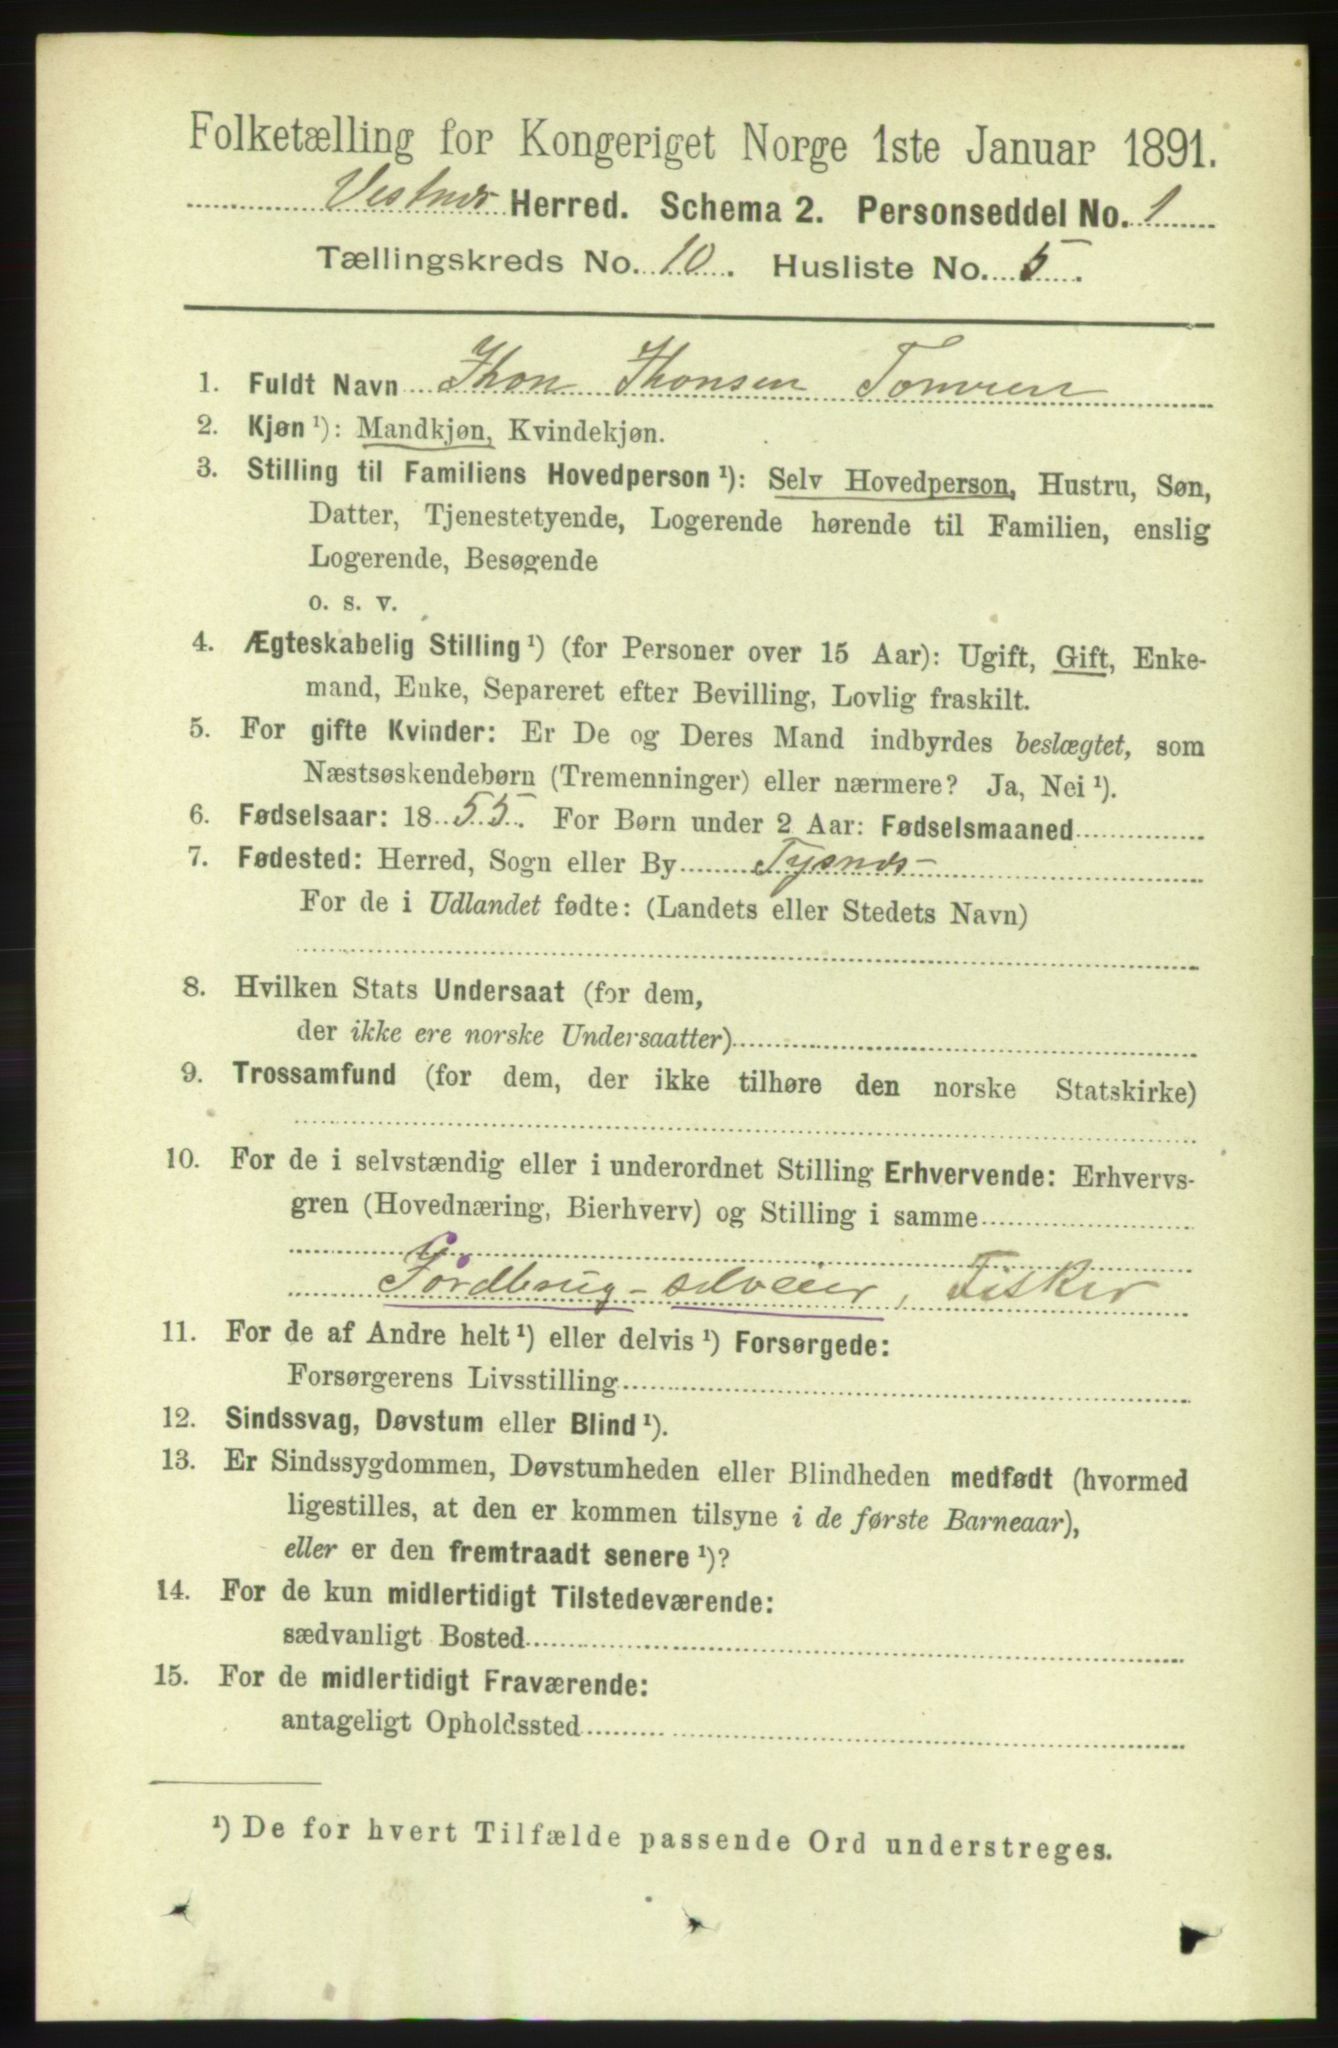 Folketælling for Kongeriget Norge 1ste Januar 1891.
Vestnes Herred. Schema 2. Personseddel No. 1
Tællingskreds No. 10. Husliste No. 5.
1. Fuldt Navn Jhon Jhonsen Tomren
2. Kjøn ¹): Mandkjøn, Kvindekjøn.
3. Stilling til Familiens Hovedperson ¹): Selv Hovedperson, Hustru, Søn,
Datter, Tjenestetyende, Logerende hørende til Familien, enslig
Logerende, Besøgende
o. s. v.
4. Ægteskabelig Stilling ¹) (for Personer over 15 Aar): Ugift, Gift, Enke-
mand, Enke, Separeret efter Bevilling, Lovlig fraskilt.
5. For gifte Kvinder: Er De og Deres Mand indbyrdes beslægtet, som
Næstsøskendebørn (Tremenninger) eller nærmere? Ja, Nei ¹).
6. Fødselsaar: 1855. For Børn under 2 Aar: Fødselsmaaned
7. Fødested: Herred, Sogn eller By Tysnes
For de i Udlandet fødte: (Landets eller Stedets Navn)
8. Hvilken Stats Undersaat (for dem,
der ikke ere norske Undersaatter)
9. Trossamfund (for dem, der ikke tilhøre den norske Statskirke)
10. For de i selvstændig eller i underordnet Stilling Erhvervende: Erhvervs-
gren (Hovednæring, Bierhverv) og Stilling i samme
Jordbrug - selveier, Fisker
11. For de af Andre helt ¹) eller delvis ¹) Forsørgede:
Forsørgerens Livsstilling
12. Sindssvag, Døvstum eller Blind ¹).
13. Er Sindssygdommen, Døvstumheden eller Blindheden medfødt (hvormed
ligestilles, at den er kommen tilsyne i de første Barneaar),
eller er den fremtraadt senere ¹)?
14. For de kun midlertidigt Tilstedeværende:
sædvanligt Bosted
15. For de midlertidigt Fraværende:
antageligt Opholdssted
¹) De for hvert Tilfælde passende Ord understreges.